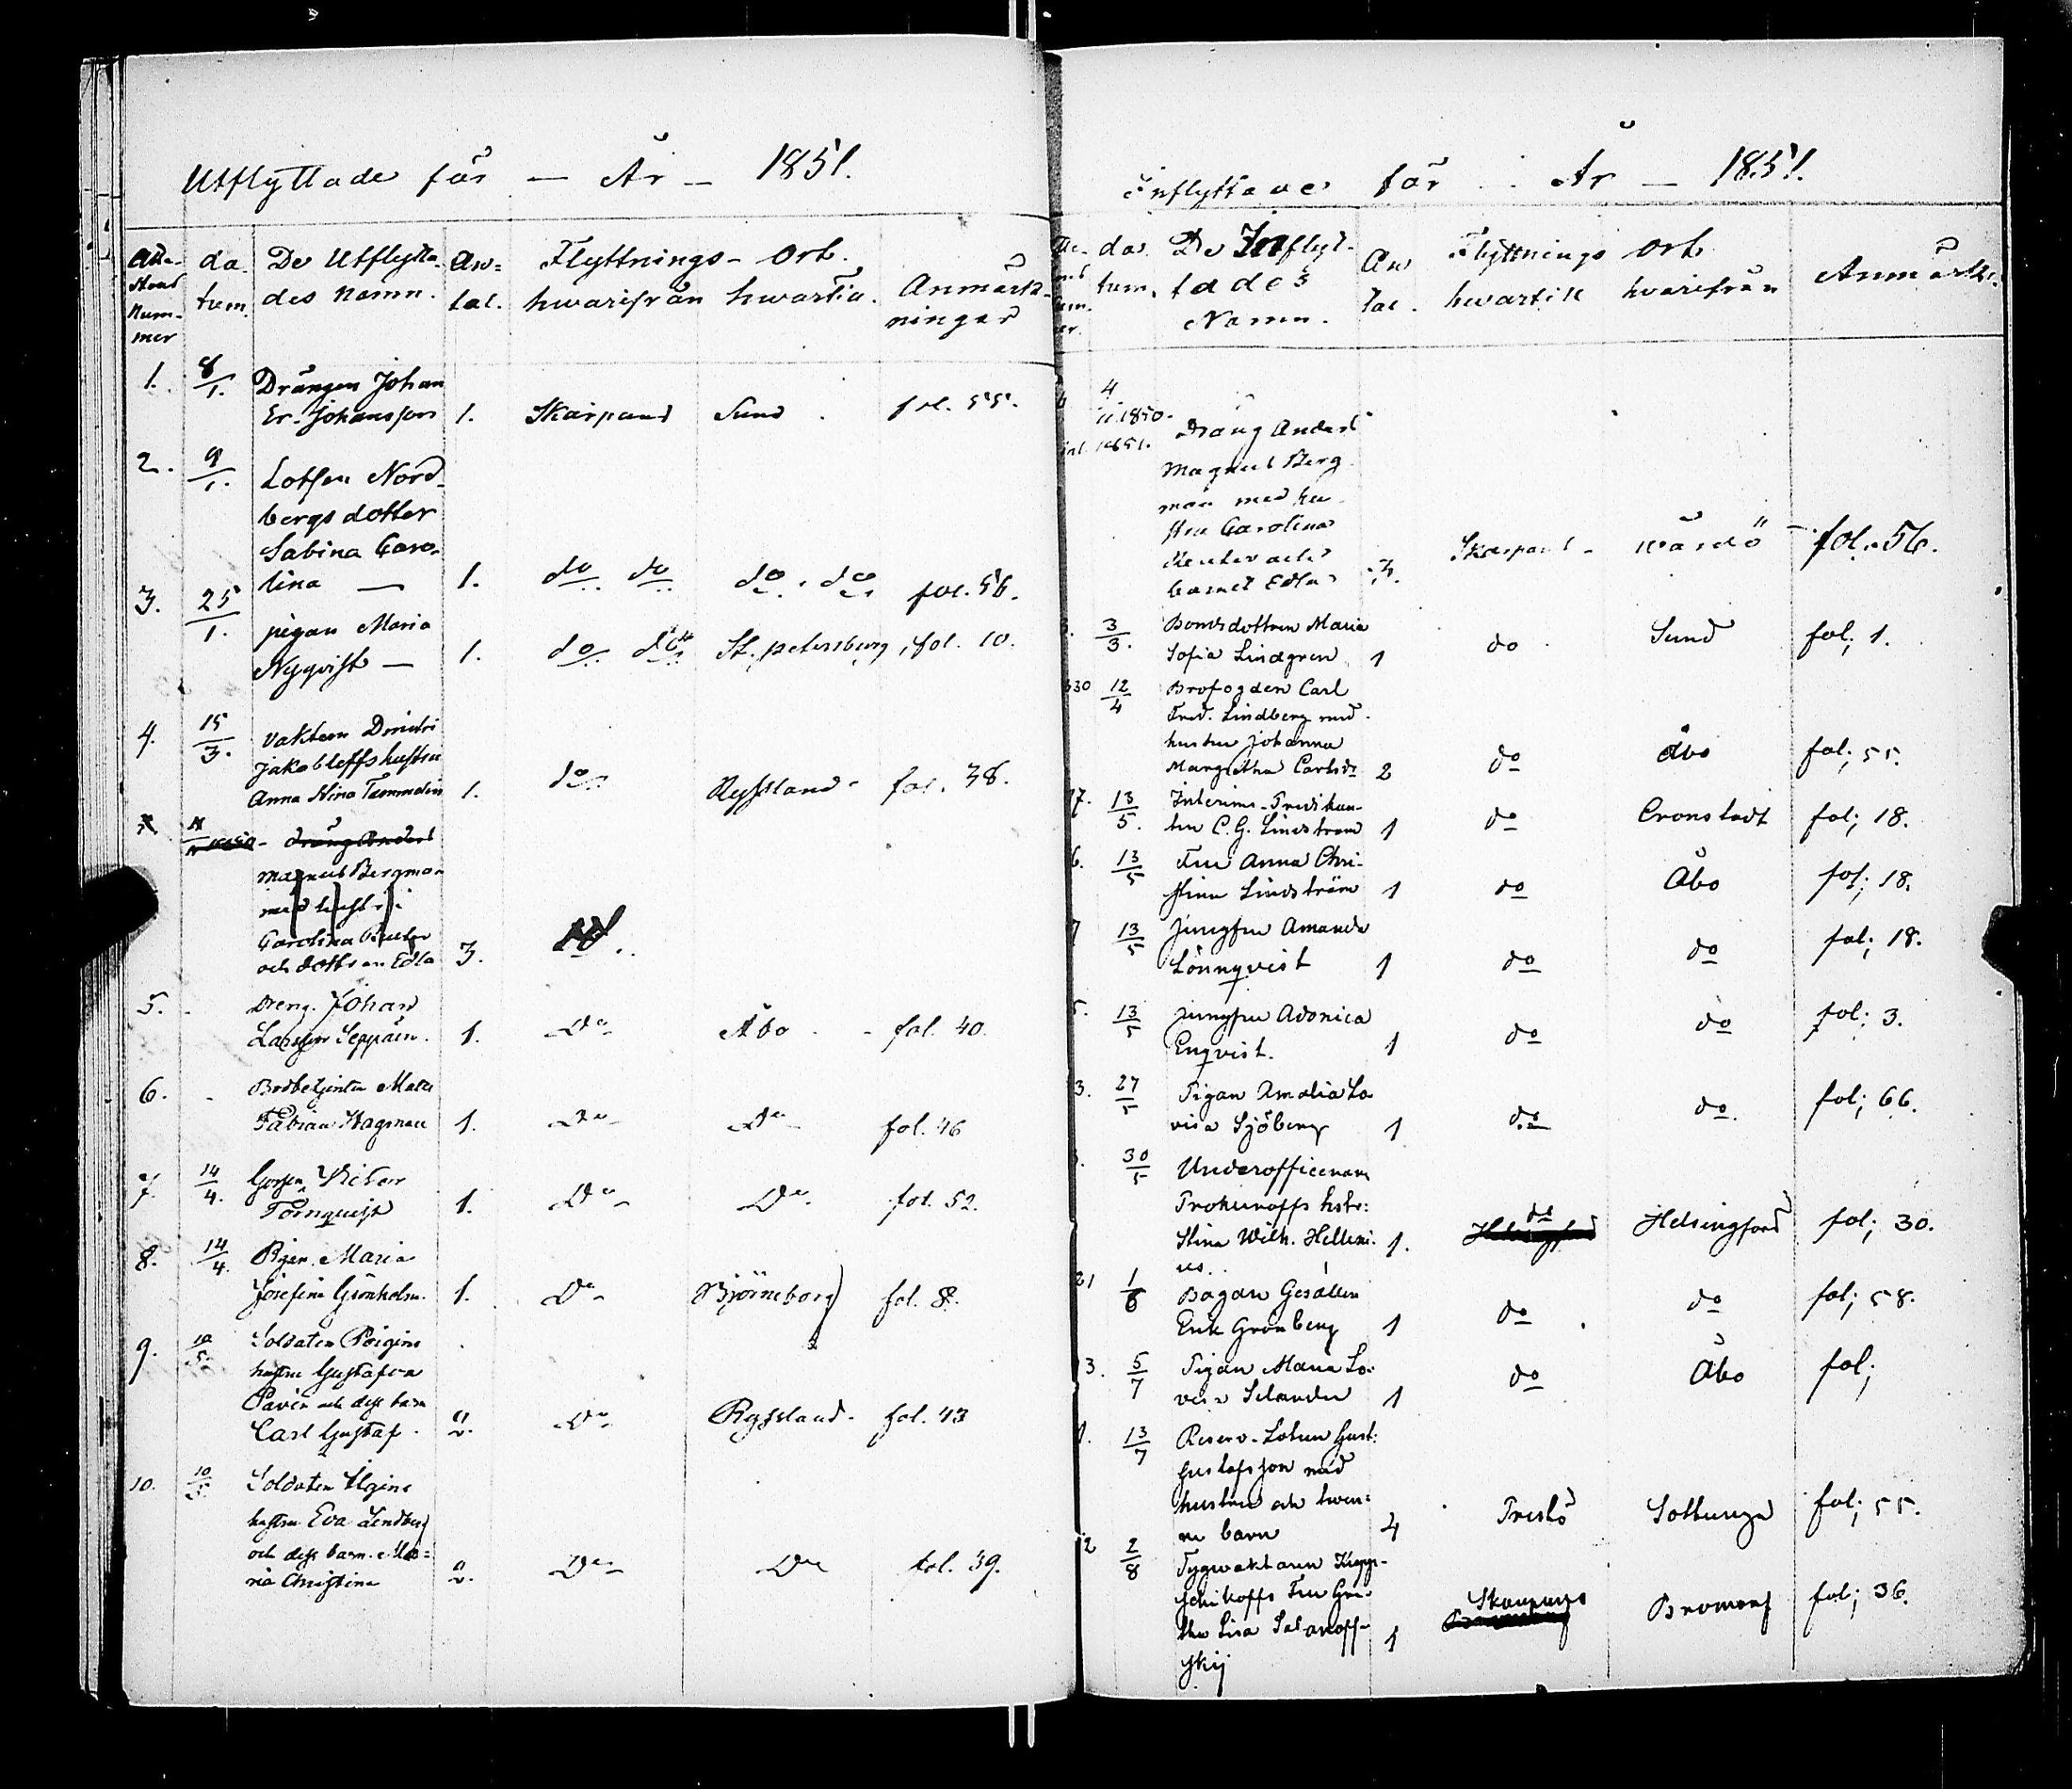 Utflyttade för — År — 1851.
Atte-
stens
Num-
mer
da
tum.
De Utflytta
des Namn.
An-
tal.
Flyttnings- Ort.
hwarifrån hwartill.
Anmärk-
ningar
1. 8/1. Drängen Johan
Er. Johansson 1. Skarpans Sund. fol. 55.
2. 9/1. Lotsen Nord-
bergs dotter
Sabina Caro-
lina — 1. do do do. do fol. 56.
3. 25/1. pigan Maria
Nyqvist — 1. do do St. petersburg, fol. 10.
4. 15/3. Vakteren Dmitri
Jakobleffs hustru
Anna Stina Tammelin 1. do Ryssland fol. 38.
dräng Anders
Magnus Bergman
med hustru
Carolina Reuter
och dottren Edla 3.
5. Dreng. Johan
Larsson Seppäin. 1. Do Åbo - fol. 40.
6. Bodbetjenten Mats
Fabian Hagman 1. Do Do fol. 46
7. 14/4. Victor
Törnquist 1. Do Do fol. 52.
8. 14/4. Pigan Maria
Josefina Grönholm. 1. Do Björneborg fol. 8.
9. 10/5. Soldaten
hustru Gustafva
Pavin och dess barn
Carl Gustaf. 2. Do Ryssland. fol. 43
10. 10/5. Soldaten
hustru Eva Lindberg
och dess barn Ma=
ria Christina 2. Do Do fol. 39.
Inflyttade för År — 1851.
da
tum.
De Inflyt-
tades
Namn.
An
tal.
Flyttnings Ort
hwartill hvarifrån
Anmärk.
4
11.1850.
1851. Dräng Anders
Magnus Berg
man med hu
stru Carolina
Reuter och
barnet Edla 3. Skarpans - Wårdö - fol. 56.
3/3. Bondedottren Maria
Sofia Lindgren 1 do Sund fol; 1.
330 12/4 Brofogden Carl
Fred. Lindberg med
hustru Johanna
Margretha Carlsdr 2 do Åbo fol; 55.
17. 13/5. Interims-Predikan-
ten C.G. Lindström 1 do Cronstadt fol; 18.
6. 13/5 Fru Anna Chri-
stina Lindström 1 do Åbo fol; 18.
7 13/5 Jungfru Amanda
Lönnqvist 1 do do fol; 18.
5. 13/5 Jungfru Adonica
Enqvist. 1 do do fol; 3.
3. 27/5 Pigan Amalia Lo
visa Sjöberg 1 do do fol; 66.
30/5 Underofficeraren
Prokuroffs hstr:
Stina Wilh. Helleni
us. 1. do Helsingfors fol; 30.
21 1/6 Bagare Gesällen
Erik Grönberg 1 do do fol; 58.
3. 5/7 Pigan Maria Lo-
visa Selander 1 do Åbo fol;
1. 13/7 Reserv-Lotsen Gust:
Gustafsson med
hustru och twen-
ne barn 4 Prestö Soltunga fol; 55.
12 2/8 Tygwaktaren
schikoffs Fru Gre-
tha Lisa
skij 1 Skarpans Bromarf fol; 36.